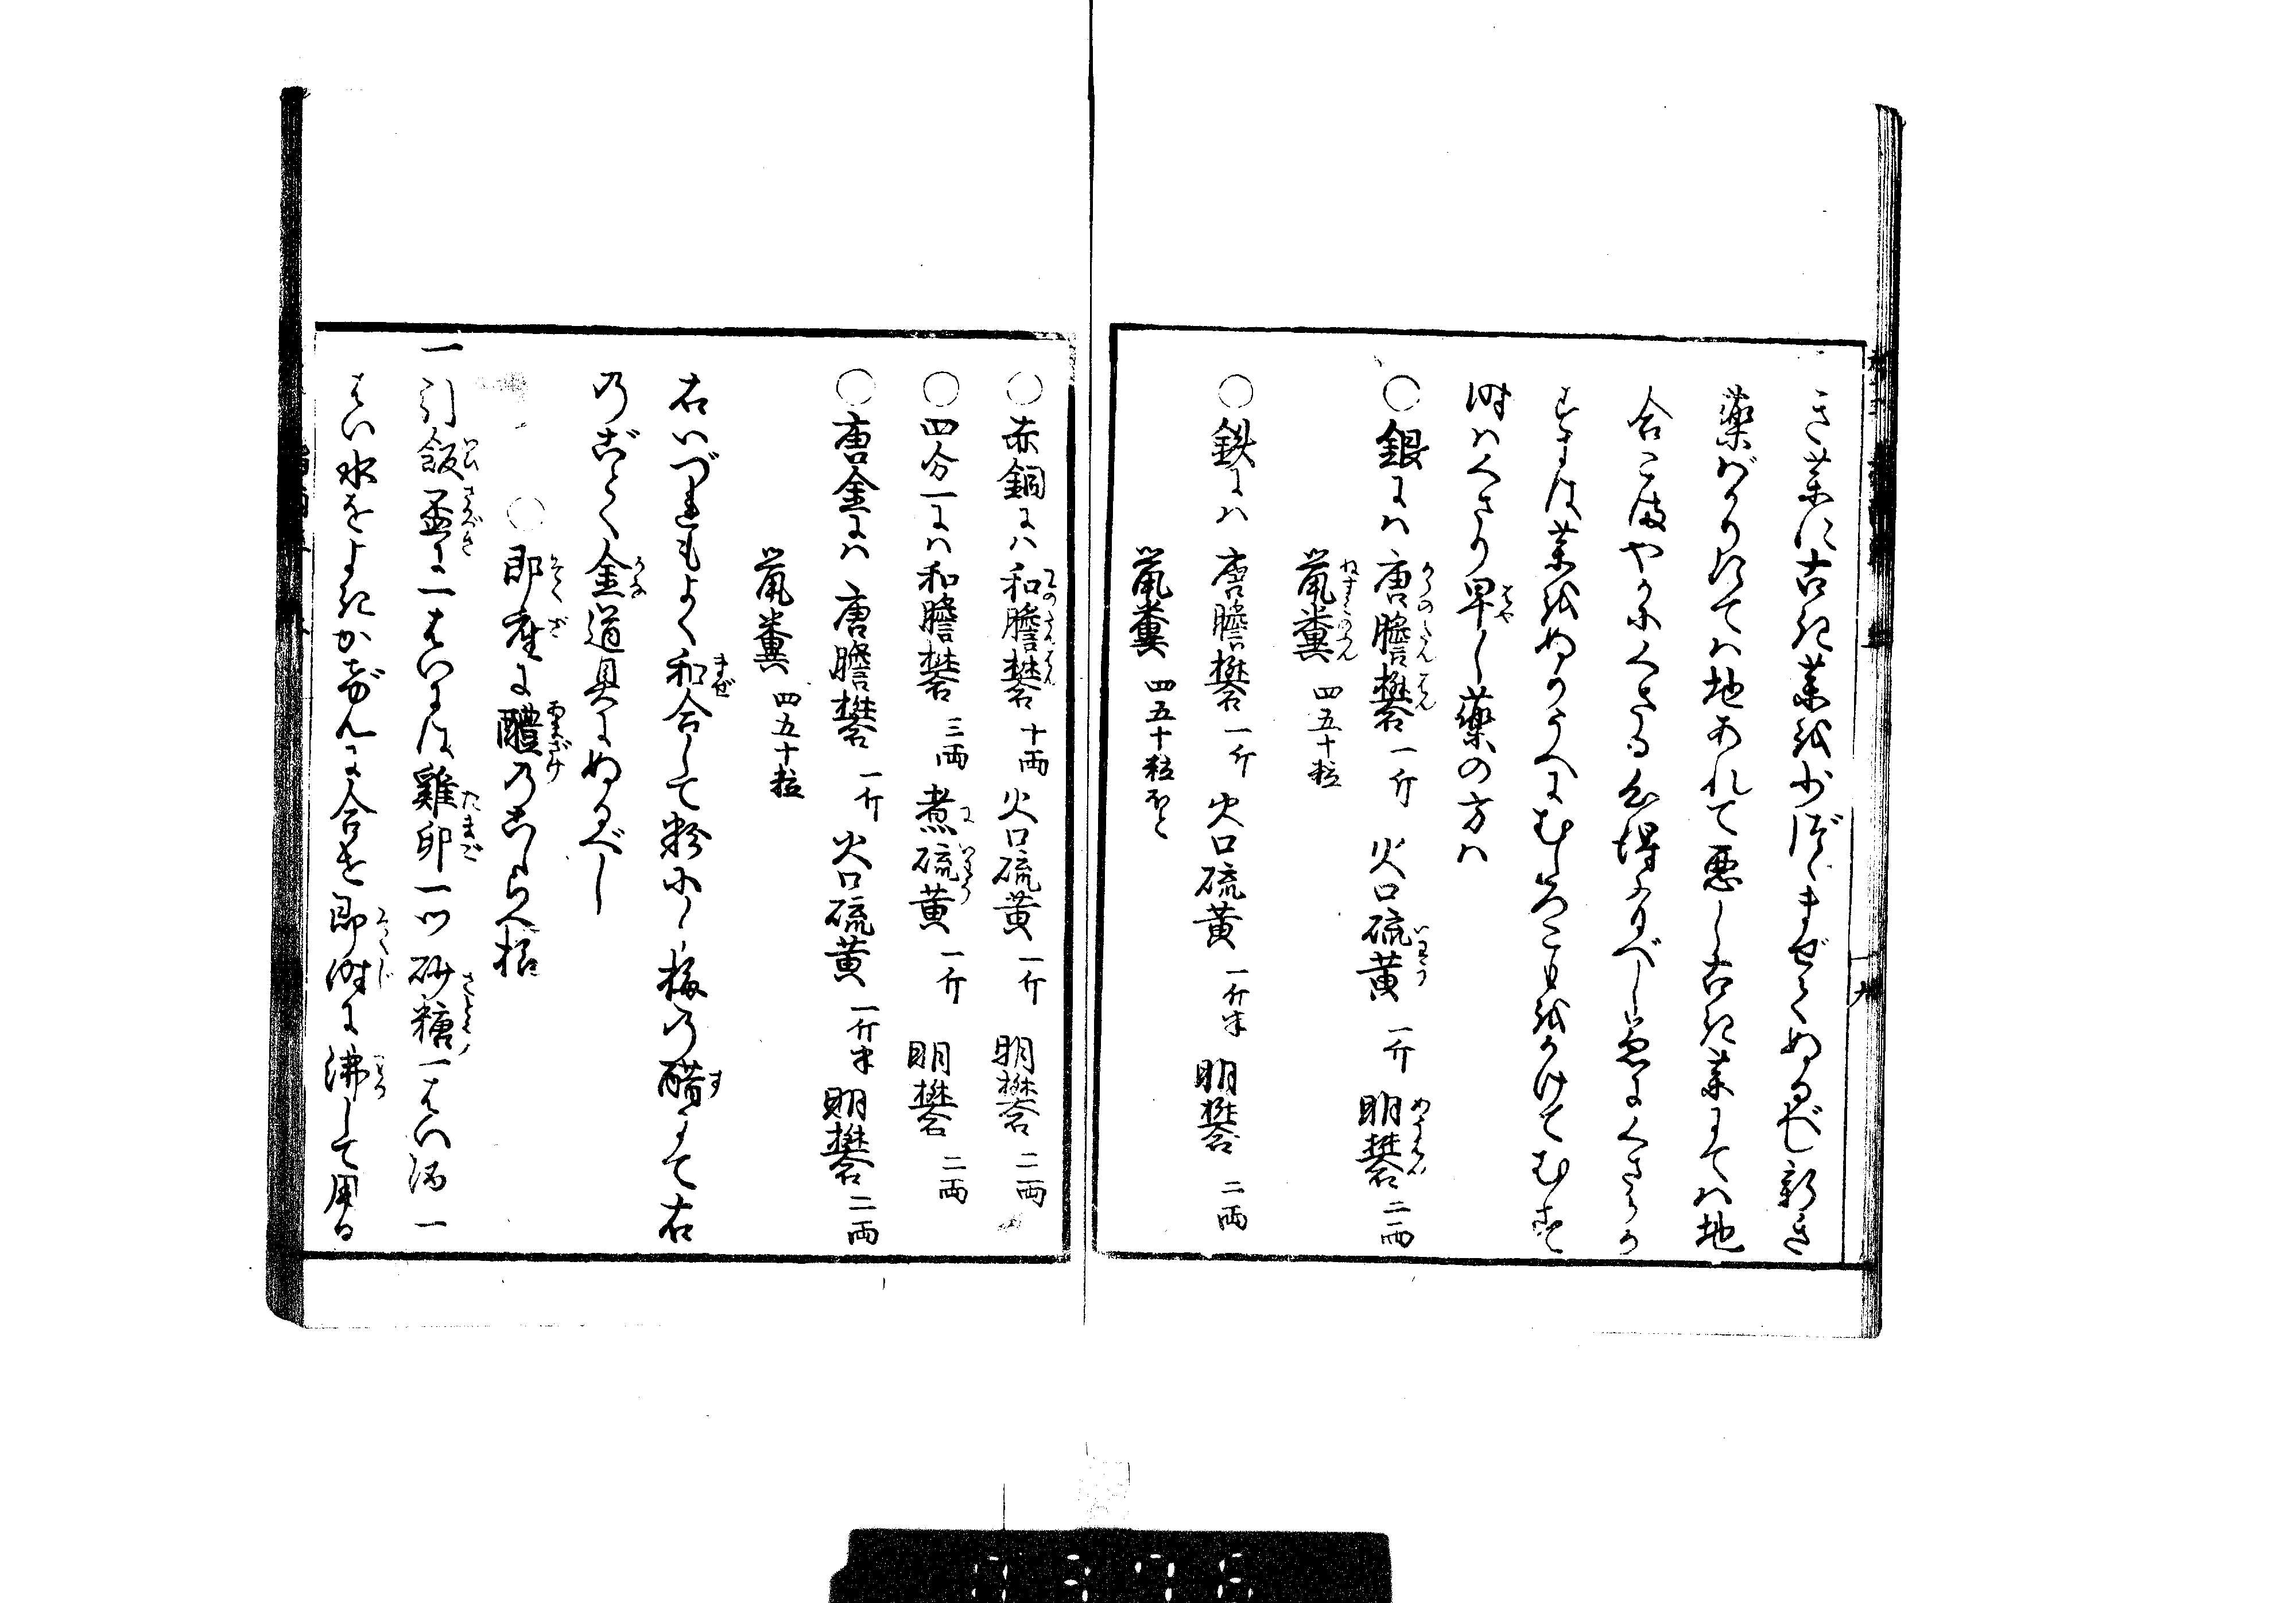 き薬に古き薬を少づゝまぜてぬるべし新き
薬ばかりにては地あれて悪し古き薬にては地
合こまやかにくさる心得あるべし急にくさらか
さすには薬をぬりうへにむしろこもをかけてむす
時はくさり早し薬の方は
○銀には唐膽礬一斤 火口硫黄一斤 明礬二両
鼠糞 四五十粒
○鉄には 唐膽礬一斤 火口硫黄一斤半 明礬 二両
鼠糞 四五十粒ほと
○赤銅には和膽礬十両 火口硫黄一斤 明礬二両
○四分一には和膽礬三両 煮硫黄一斤 明礬二両
○唐金には 唐膽礬一斤 火口硫黄一斤半 明礬二両
鼠糞 四五十粒
右いづれもよく和合して粉にし梅の醋にて右
のごとく金道具にぬるべし
○即座に醴のこしらへ様
一引飯盃に一ぱいには雞卵一ツ砂糖一ぱい酒一
ぱい水をよきかげんに合せ即時に沸して用る